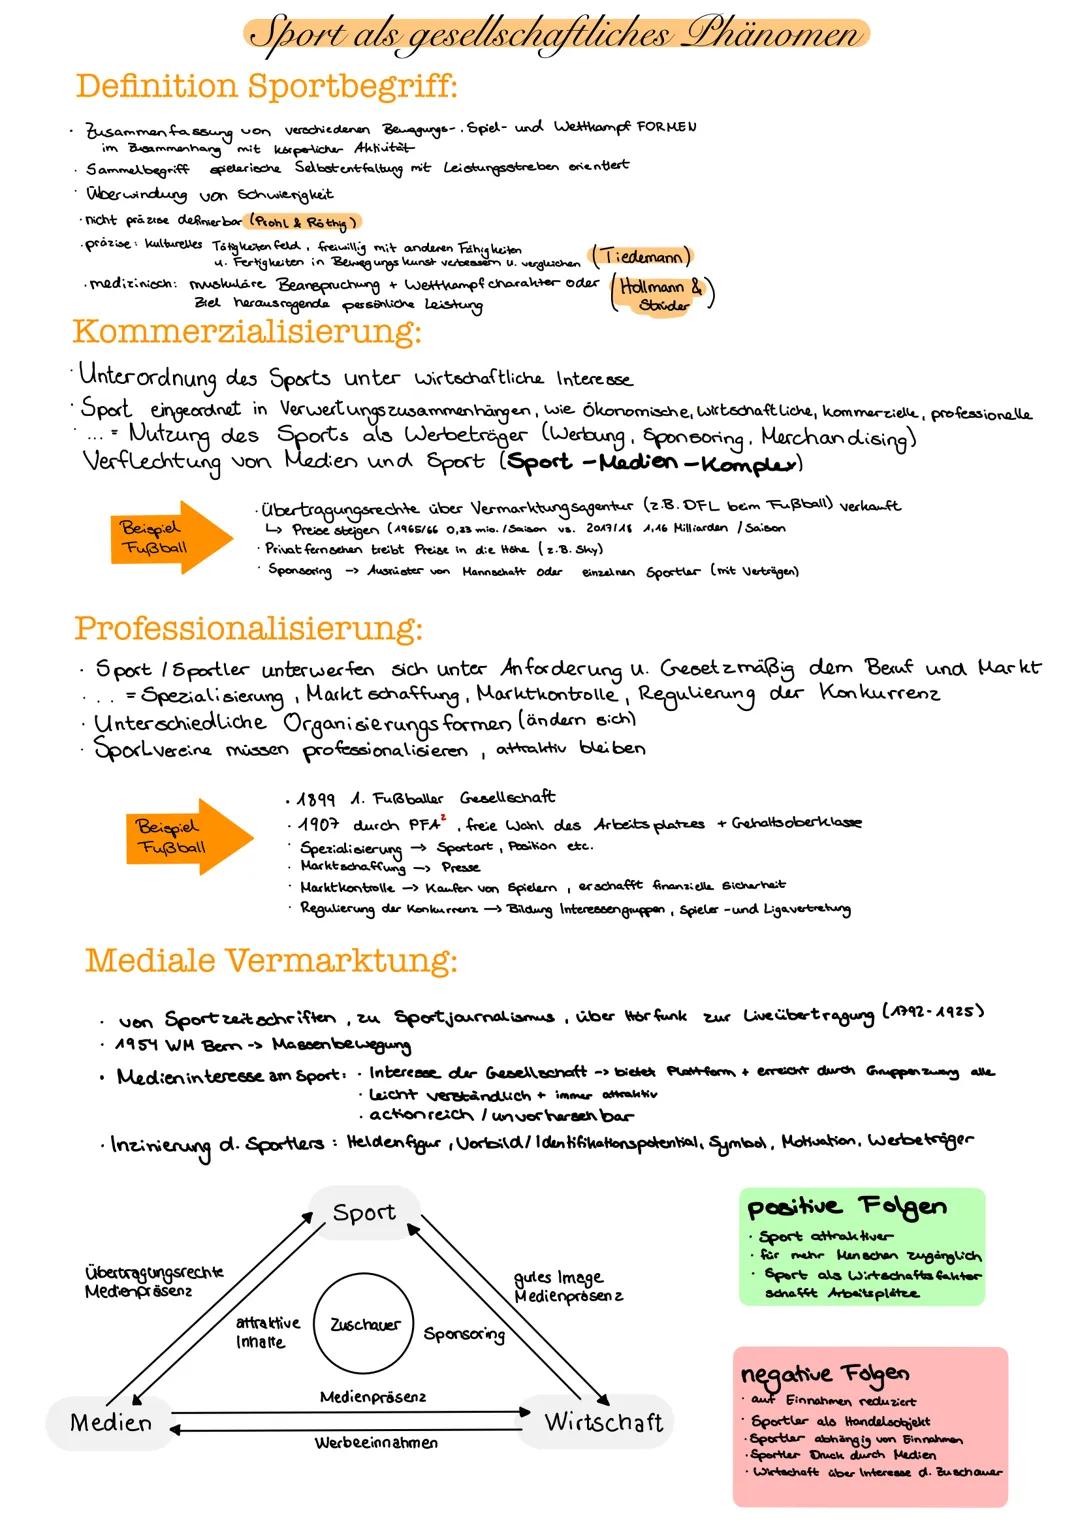 Sport als gesellschaftliches Phänomen
Definition Sportbegriff:
· Zusammenfassung von verschiedenen Bewegungs-, Spiel- und Wettkampf FORMEN
im Zusammenhang mit körperlicher Aktivität
· Sammelbegriff spielerische Selbstentfaltung mit Leistungsstreben orientiert
· Überwindung von Schwierigkeit
· nicht präzise definierbar (Prohl & Röthig)
· präzise: kulturelles Tätigkeitenfeld, freiwillig mit anderen Fähigkeiten
u. Fertigkeiten in Bewegungskunst verbessern u. vergleichen (Tiedemann)
· medizinisch: muskuläre Beanspruchung + Wettkampfcharakter oder (Hollmann &
Ziel herausragende persönliche Leistung Strüder)
Kommerzialisierung:
· Unterordnung des Sports unter wirtschaftliche Interesse
· Sport eingeordnet in Verwertungszusammenhängen, wie ökonomische, wirtschaftliche, kommerzielle, professionelle
· ... = Nutzung des Sports als Werbeträger (Werbung, Sponsoring, Merchandising)
Verflechtung von Medien und Sport (Sport-Medien-Komplex)
Beispiel
Fußball
· Übertragungsrechte über Vermarktungsagentur (z.B. DFL beim Fußball) verkauft
↳ Preise steigen (1965/66 0,33 mio. /Saison vs. 2017/18 1,16 Milliarden /Saison
· Privatfernsehen treibt Preise in die Höhe (z.B. Sky)
· Sponsoring → Ausrüster von Mannschaft oder einzelnen Sportler (mit Verträgen)
Professionalisierung:
· Sport / Sportler unterwerfen sich unter Anforderung u. Gesetzmäßig dem Beruf und Markt
· ... = Spezialisierung, Marktschaffung, Marktkontrolle, Regulierung der Konkurrenz
· Unterschiedliche Organisierungsformen (ändern sich)
· Sportvereine müssen professionalisieren, attraktiv bleiben
Beispiel
Fußball
· 1899 1. Fußballer Gesellschaft
· 1907 durch PFA², freie Wahl des Arbeitsplatzes + Gehaltsoberklasse
· Spezialisierung → Sportart, Position etc.
· Marktschaffung → Presse
· Marktkontrolle → Kaufen von Spielern, erschafft finanzielle Sicherheit
· Regulierung der Konkurrenz → Bildung Interessengruppen, Spieler-und Ligavertretung
Mediale Vermarktung:
· von Sportzeitschriften, zu Sportjournalismus, über Hörfunk zur Liveübertragung (1792-1925)
· 1954 WM Bern -> Massenbewegung
· Medieninteresse am Sport: · Interesse der Gesellschaft -> bietet Plattform + erreicht durch Gruppenzwang alle
· Leicht verständlich + immer attraktiv
· actionreich / unvorhersehbar
· Inzinierung d. Sportlers: Heldenfigur, Vorbild/Identifikationspotential, Symbol, Motivation, Werbeträger
Sport
Übertragungsrechte
Medienpräsenz
attraktive
Inhalte
Zuschauer
Sponsoring
gutes Image
Medienpräsenz
Medienpräsenz
Medien
Wirtschaft
Werbeeinnahmen
positive Folgen
· Sport attraktiver
· für mehr Menschen zugänglich
· Sport als Wirtschaftsfaktor
schafft Arbeitsplätze
negative Folgen
· auf Einnahmen reduziert
· Sportler als Handelsobjekt
· Sportler abhängig von Einnahmen
· Sportler Druck durch Medien
· Wirtschaft über Interesse d. Zuschauer